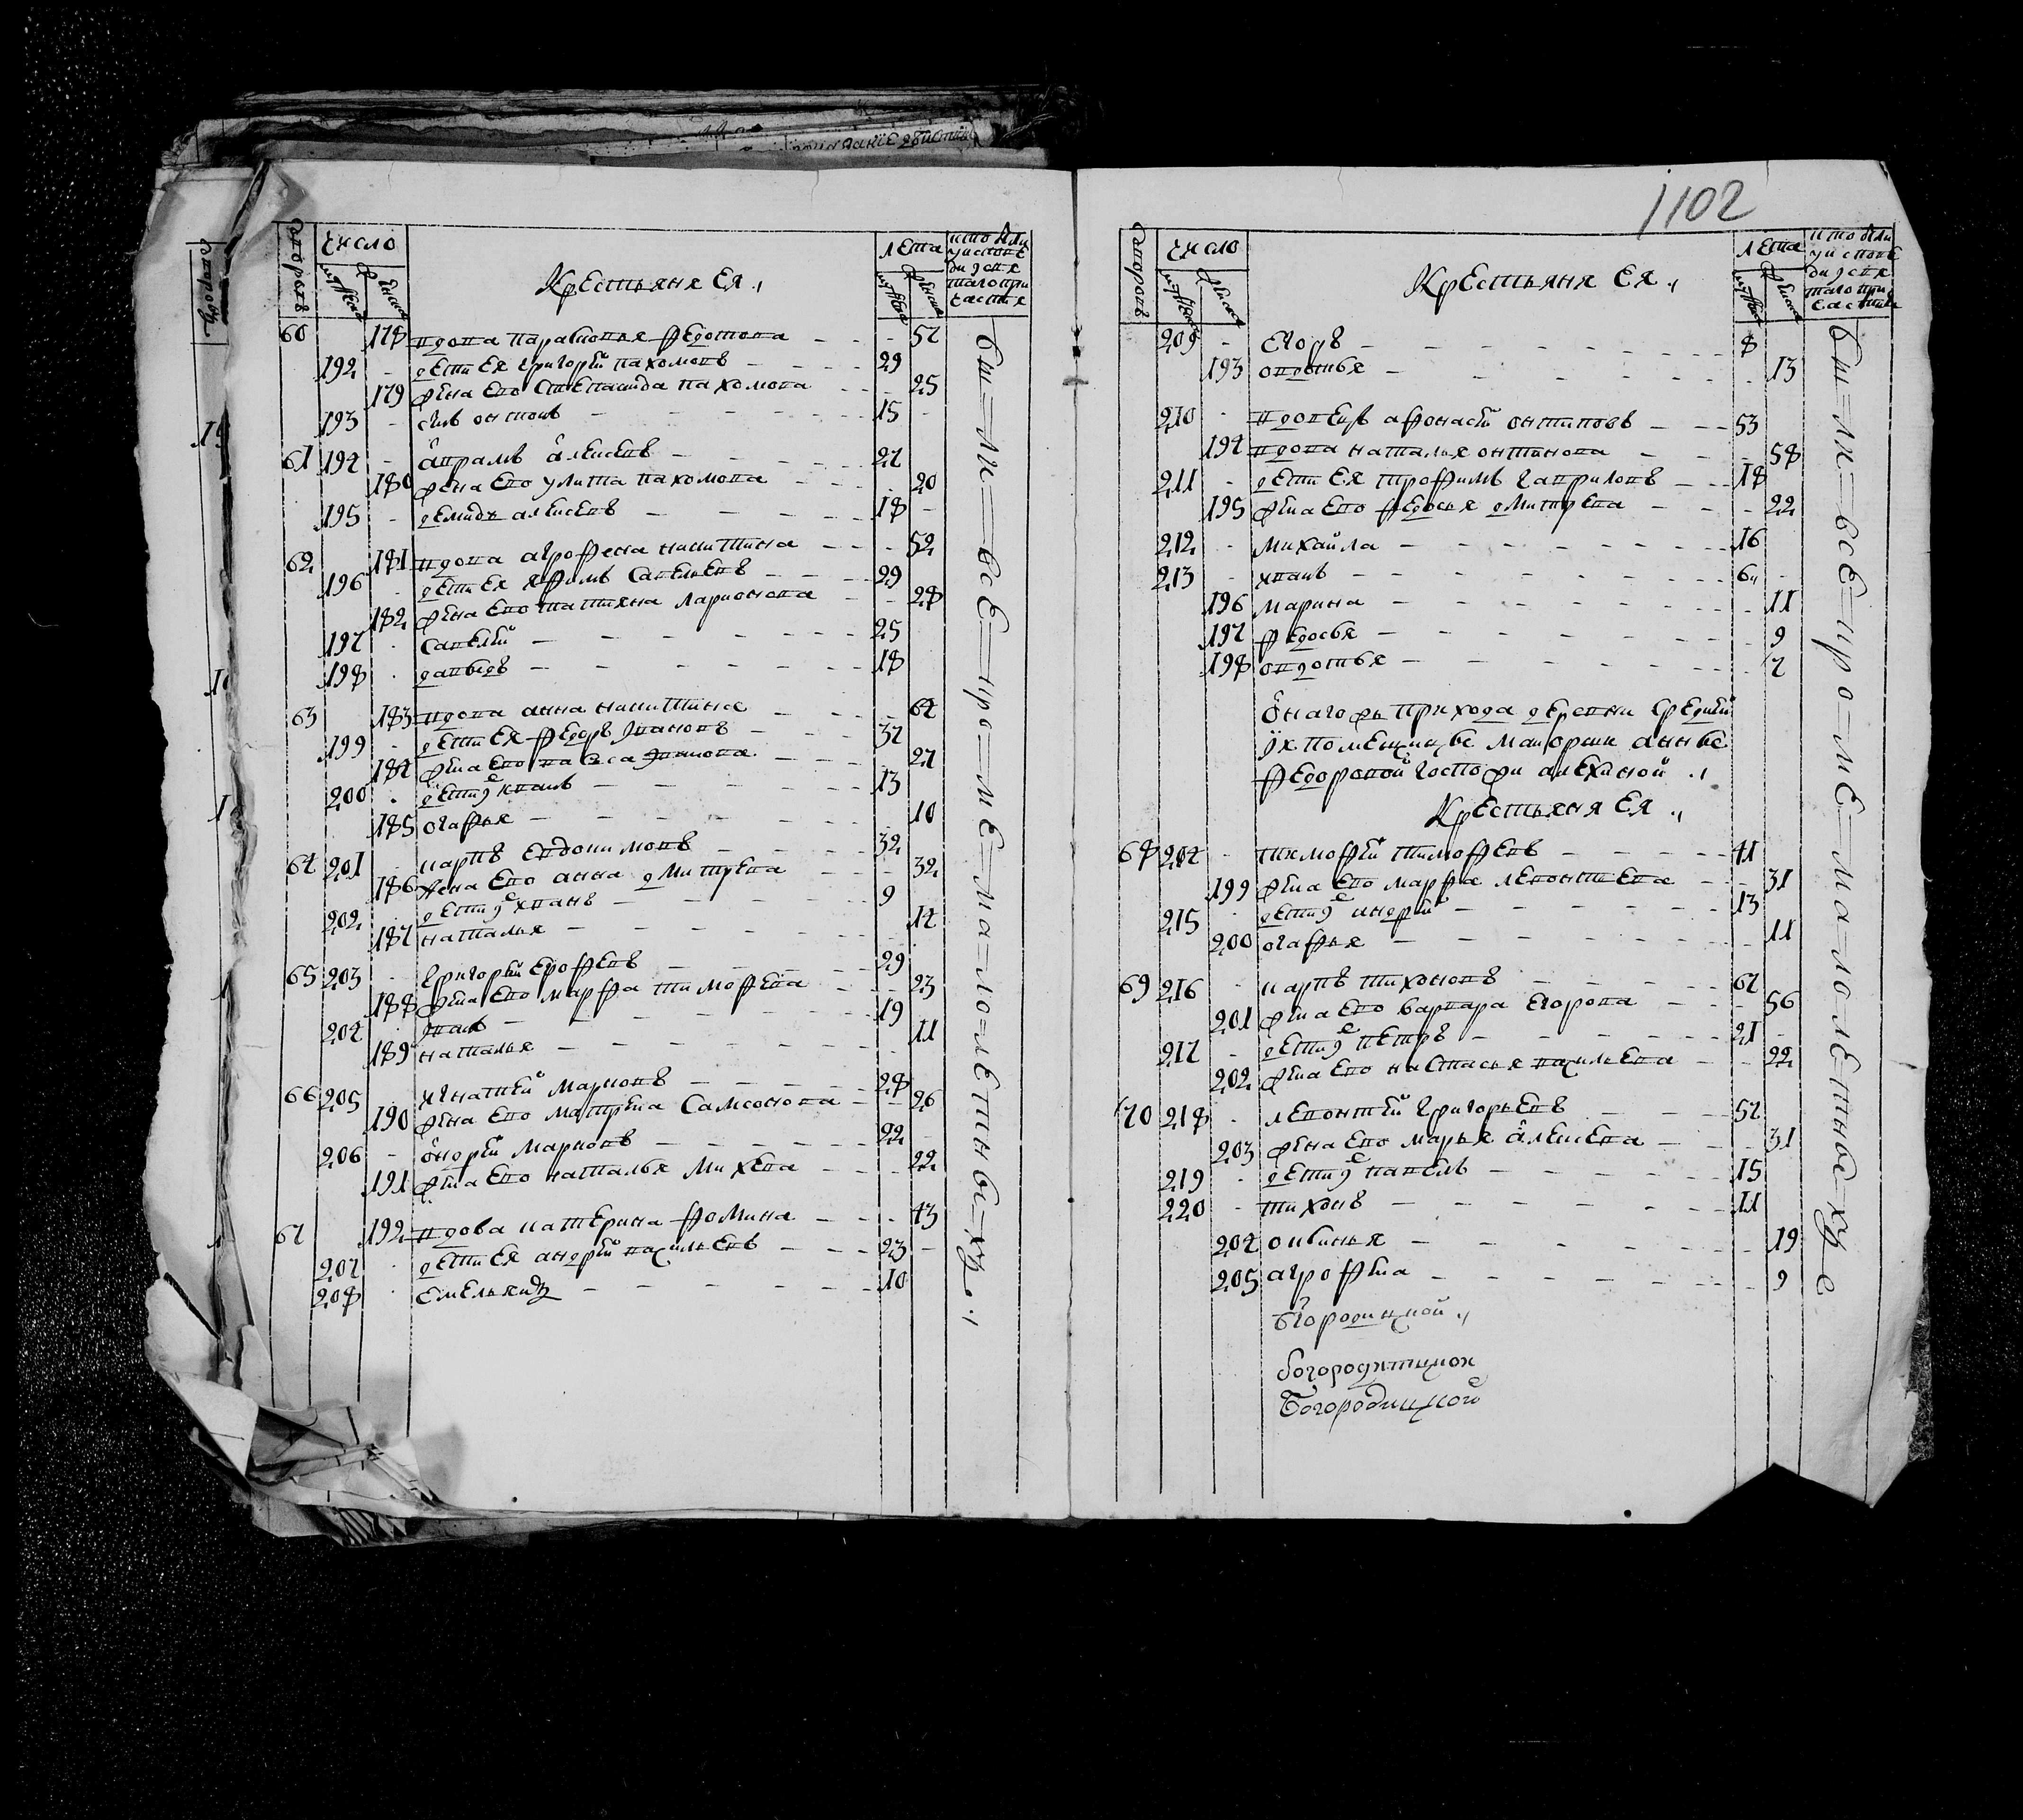 1102
дворовъ
число
мужеска
женска
Крестьяня ея
лета
мужеска
женска
кто были
у исповѣ
ди и свя
таго при
частия
60 178 вдова парасковья федотова 57
192 дети ея григорей пахомовъ 29
179 жена ево степанида пахомова 25
193 сынъ онтонъ 15
61 194 аврамъ алексевъ 27
180 жена ево улита пахомова 20
195 демидъ алексевъ 18
62 181 вдова агрофена никитина 52
196 дети ея яфимъ савельевъ 29
182 жена ево татияна ларионова 28
197 савелей 25
198 давыдъ 18
63 183 вдова анна никитина 67
199 дети ея федоръ ивановъ 37
184 жена ево 27
200 дети ихъ иванъ 13
185 огафья 10
64 201 карпъ евдокимовъ 32
186 жена ево анна дмитрева 32
202 дети ихъ иванъ 9
187 наталья 17
65 203 григорей ерофеевъ 29
188 жена ево марфа тимофеева 23
204 иванъ 19
189 наталья 11
66 205 игнатей марковъ 28
190 жена ево матрена самсонова 26
206 ондрей марковъ 22
191 жена ево наталья михева 22
67 192 вдова катерина фомина 43
207 дети ея андрей васильевъ 23
208 емельянъ 10
бы=ли=все=кро=ме=ма=ло=летныхъ
дворовъ
число
мужеска
женска
Крестьяня ея
лета
мужеска
женска
кто были
у исповѣ
ди и свя
таго при
частия
209 егоръ 8
193 овдотья 13
210 вдовецъ афонасей онтиповъ 53
194 вдова наталья онтипова 58
211 дети ея трофимъ гавриловъ 18
195 жена ево федосья дмитрева 22
212 михайла 16
213 иванъ 6
196 марина 11
197 федосья 9
198 овдотья 7
оного жъ прихода деревни средней
ук помещицы маиорши анны
федоровой госпожи алехиной
Крестьяня ея
68 214 тимофей тимофеевъ 41
199 жена ево марфа левонтева 31
215 дети ихъ андрей 13
200 огафья 11
69 216 карпъ тихоновъ 67
201 жена ево варвара егорова 56
217 дети ихъ петръ 21
202 жена ево настасья васильева 22
70 218 левонтей григорьевъ 57
203 жена ево марья алексева 31
219 дети ихъ павелъ 15
220 тихонъ 11
204 окинья 19
205 агрофена 9
богородицкой
богородитцкои
Богородицкой
бы=ли=все=кро=ме=ма=ло=летныхъ